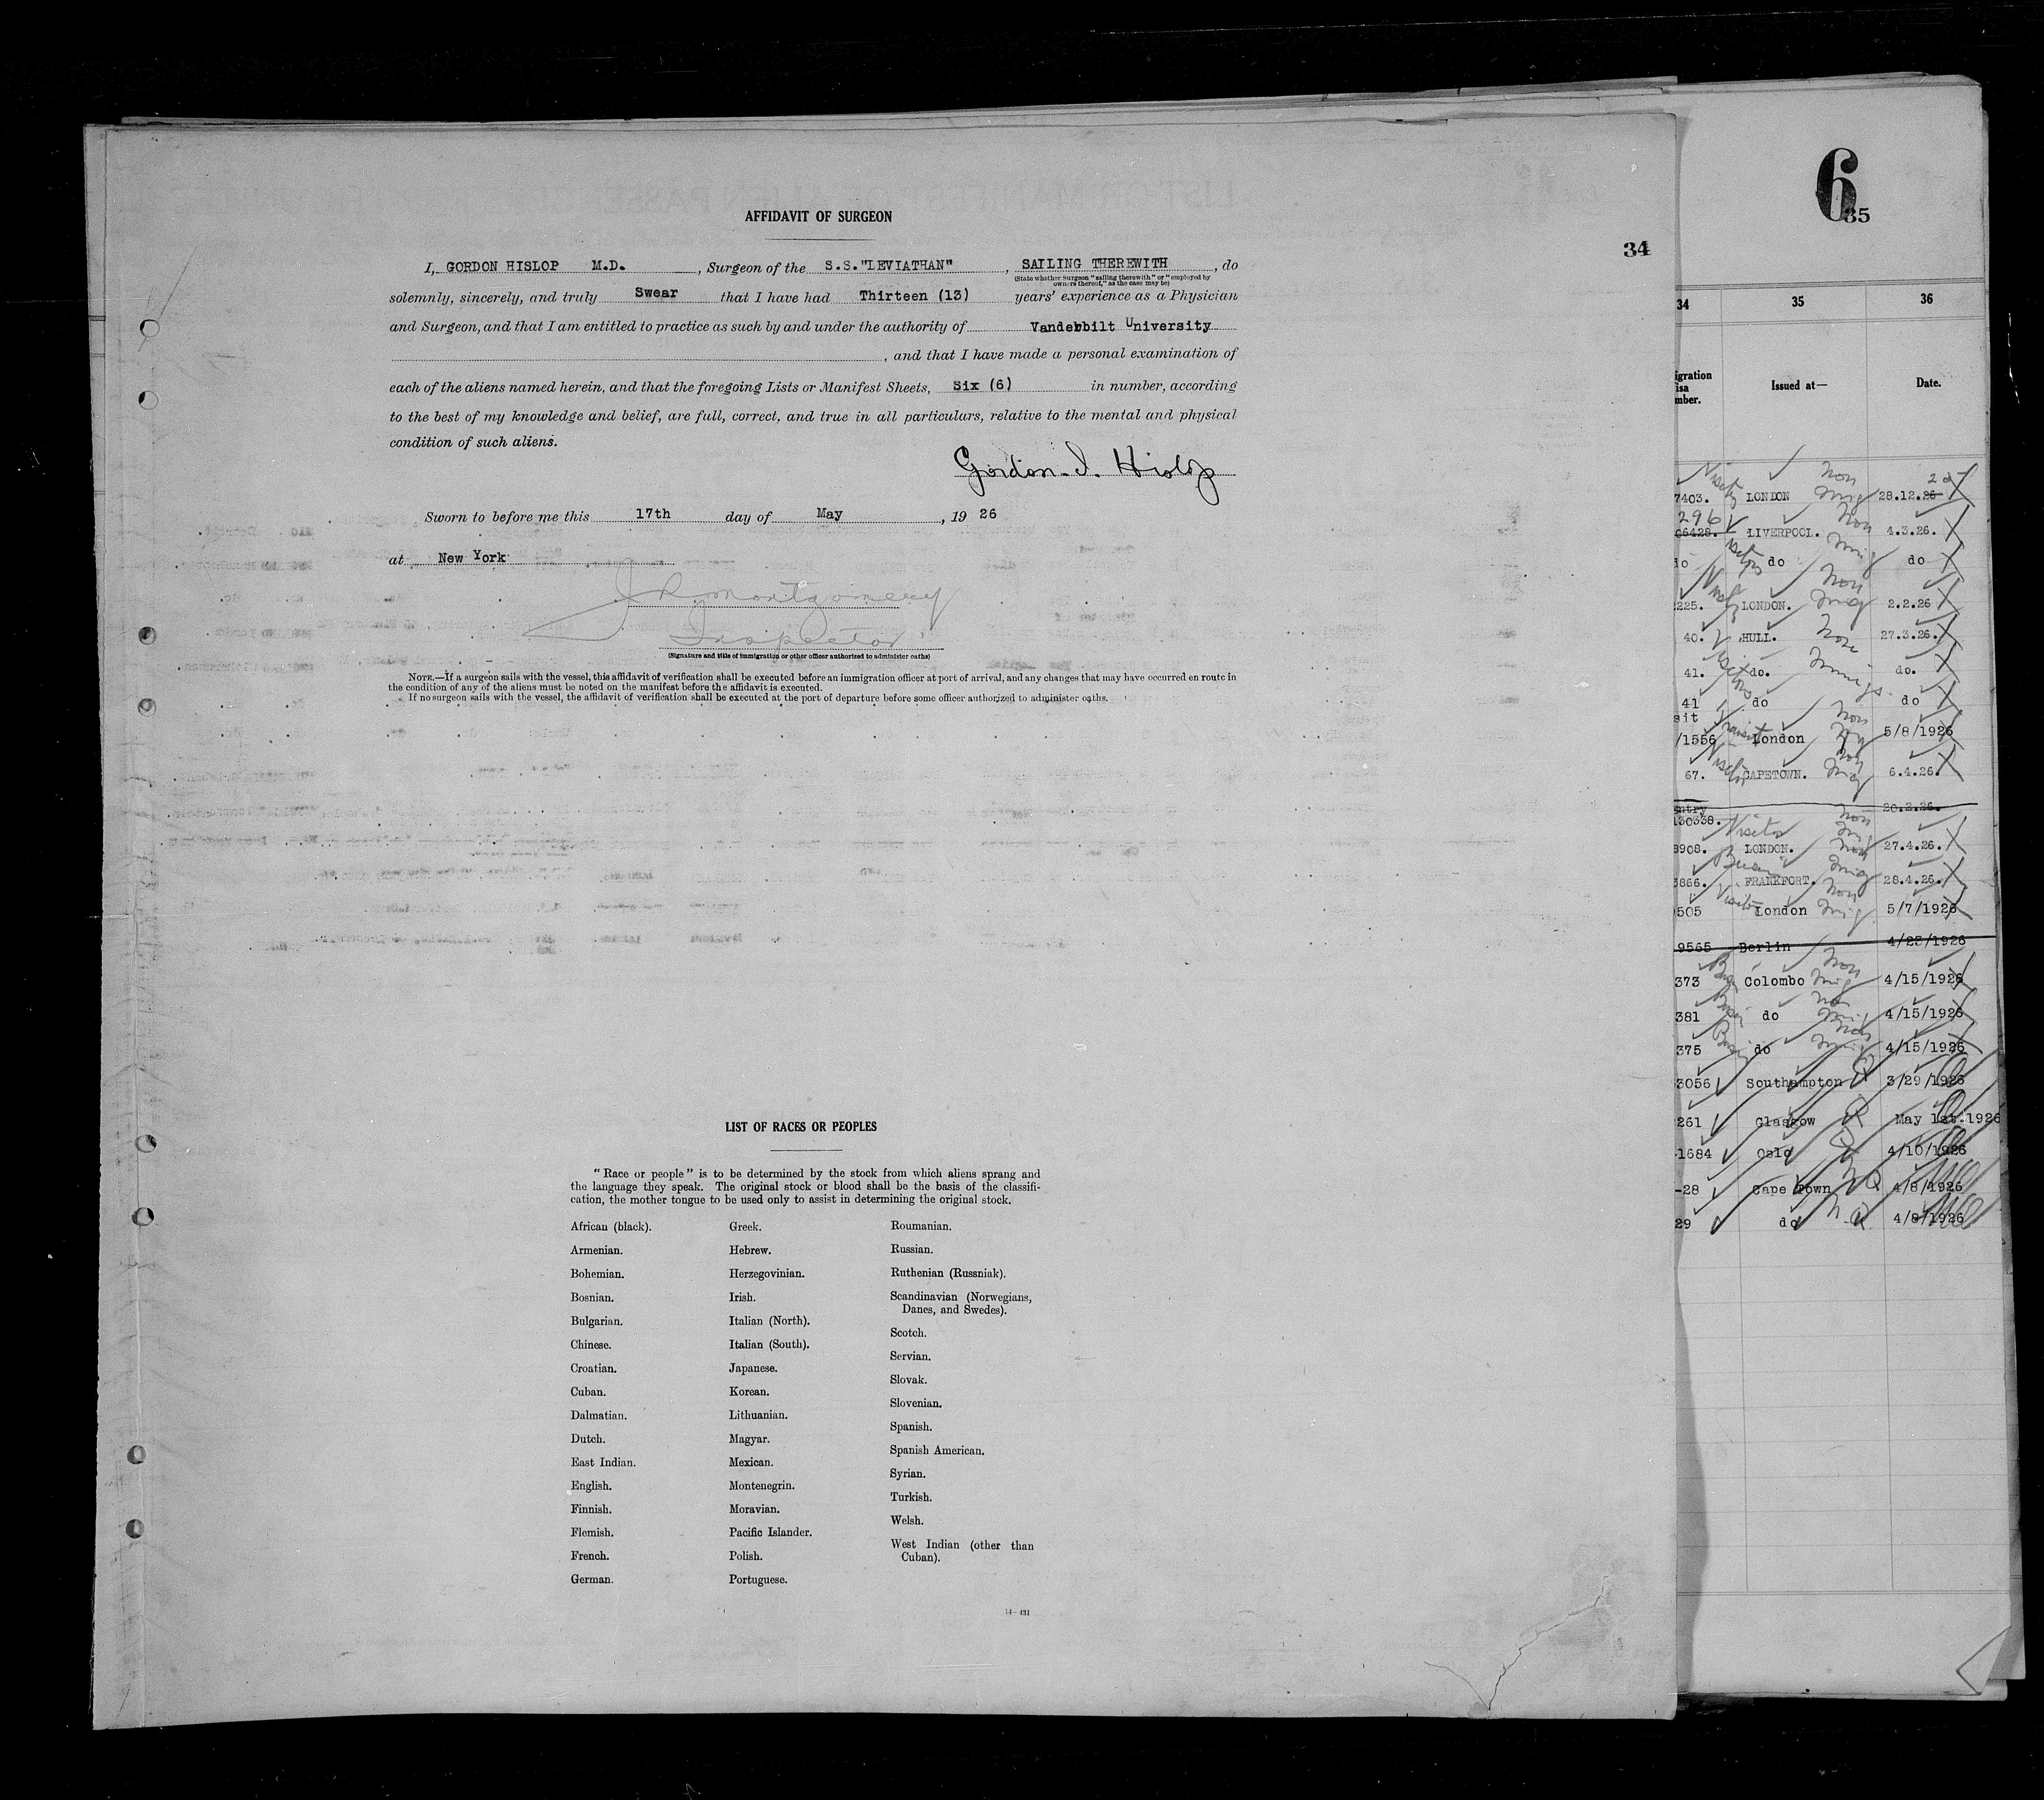 AFFIDAVIT OF SURGEON
34
I, GORDON HISLOP M.D. , Surgeon of the S.S."LEVIATHAN" , SAILING THEREWITH , do
(State whether Surgeon "sailing therewith" or "employed by
owners thereof," as the case may be)
solemnly, sincerely, and truly Swear that I have had Thirteen (13) years' experience as a Physician
and Surgeon, and that I am entitled to practice as such by and under the authority of Vanderbilt University
, and that I have made a personal examination of
each of the aliens named herein, and that the foregoing Lists or Manifest Sheets, Six (6) in number, according
to the best of my knowledge and belief, are full, correct, and true in all particulars, relative to the mental and physical
condition of such aliens.
Gordon I. Hislop
Sworn to before me this 17th day of May , 19 26
at New York
Montgomery
Inspector
(Signature and title of immigration or other officer authorized to administer oaths)
NOTE.—If a surgeon sails with the vessel, this affidavit of verification shall be executed before an immigration officer at port of arrival, and any changes that may have occurred en route in
the condition of any of the aliens must be noted on the manifest before the affidavit is executed.
If no surgeon sails with the vessel, the affidavit of verification shall be executed at the port of departure before some officer authorized to administer oaths.
LIST OF RACES OR PEOPLES
"Race or people" is to be determined by the stock from which aliens sprang and
the language they speak. The original stock or blood shall be the basis of the classifi-
cation, the mother tongue to be used only to assist in determining the original stock.
African (black).
Armenian.
Bohemian.
Bosnian.
Bulgarian.
Chinese.
Croatian.
Cuban.
Dalmatian.
Dutch.
East Indian.
English.
Finnish.
Flemish.
French.
German.
Greek.
Hebrew.
Herzegovinian.
Irish.
Italian (North).
Italian (South).
Japanese.
Korean.
Lithuanian.
Magyar.
Mexican.
Montenegrin.
Moravian.
Pacific Islander.
Polish.
Portuguese.
Roumanian.
Russian.
Ruthenian (Russniak).
Scandinavian (Norwegians,
Danes, and Swedes).
Scotch.
Servian.
Slovak.
Slovenian.
Spanish.
Spanish American.
Syrian.
Turkish.
Welsh.
West Indian (other than
Cuban).
14—431
6
35
34 35 36
igration
isa
mber.
Issued at—
Date.
7403. LONDON 28.12.26
296
06428. LIVERPOOL. 4.3.26.
do do do
225. LONDON. 2.2.26
40. HULL. 27.3.26.
41. do. do.
41 do do
sit
/1556 London 5/8/1926
67. CAPETOWN. 6.4.26.
entry 20.2.26.
130338.
8908. LONDON. 27.4.26.
3866. FRANKFORT. 28.4.26.
505 London 5/7/1926
9565 Berlin 4/23/1926
373 Colombo 4/15/1926
381 do 4/15/1926
375 do 4/15/1926
3056 Southampton 3/29/1926
261 Glasgow May 1st.1926
1684 Oslo 4/10/1926
-28 Cape Town 4/8/1926
29 do 4/8/1926